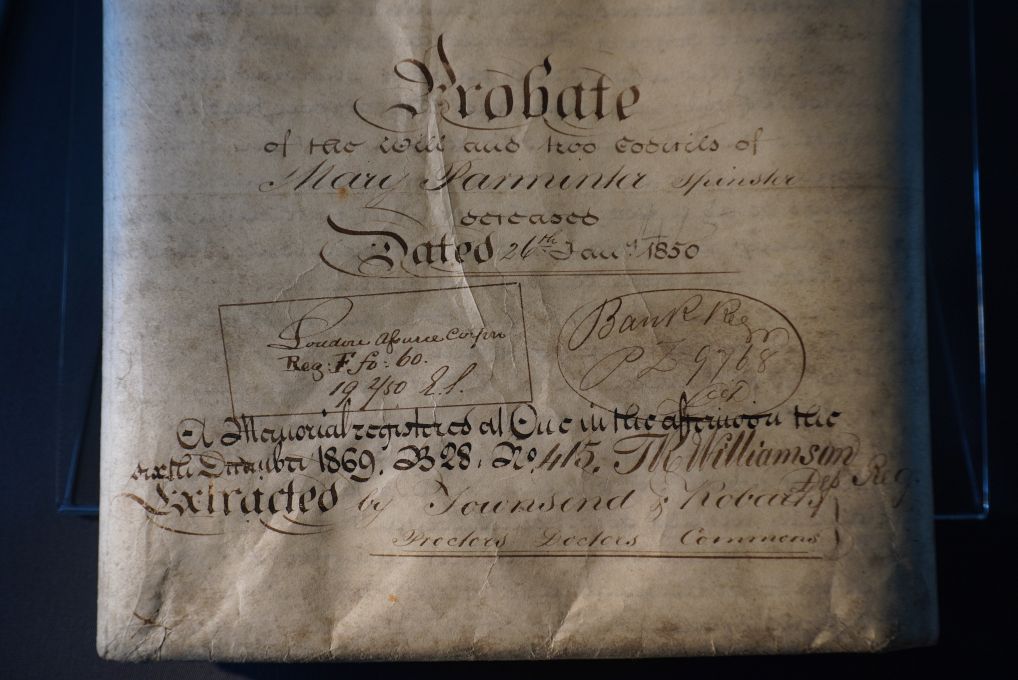 Probate
of the Will and two Codicils of
Mary Parminter Spinster
deceased
Dated 26th Jany. 1850
London Assurce Corpn
Reg: F fo: 60.
19 2/50
Bank Reg
9768
A Memorial registered at One in the afternoon the
sixth December 1869. B 28. No 415. Williamson
Dep Reg.
Extracted by Townsend & Robarts
Proctors Doctors Commons